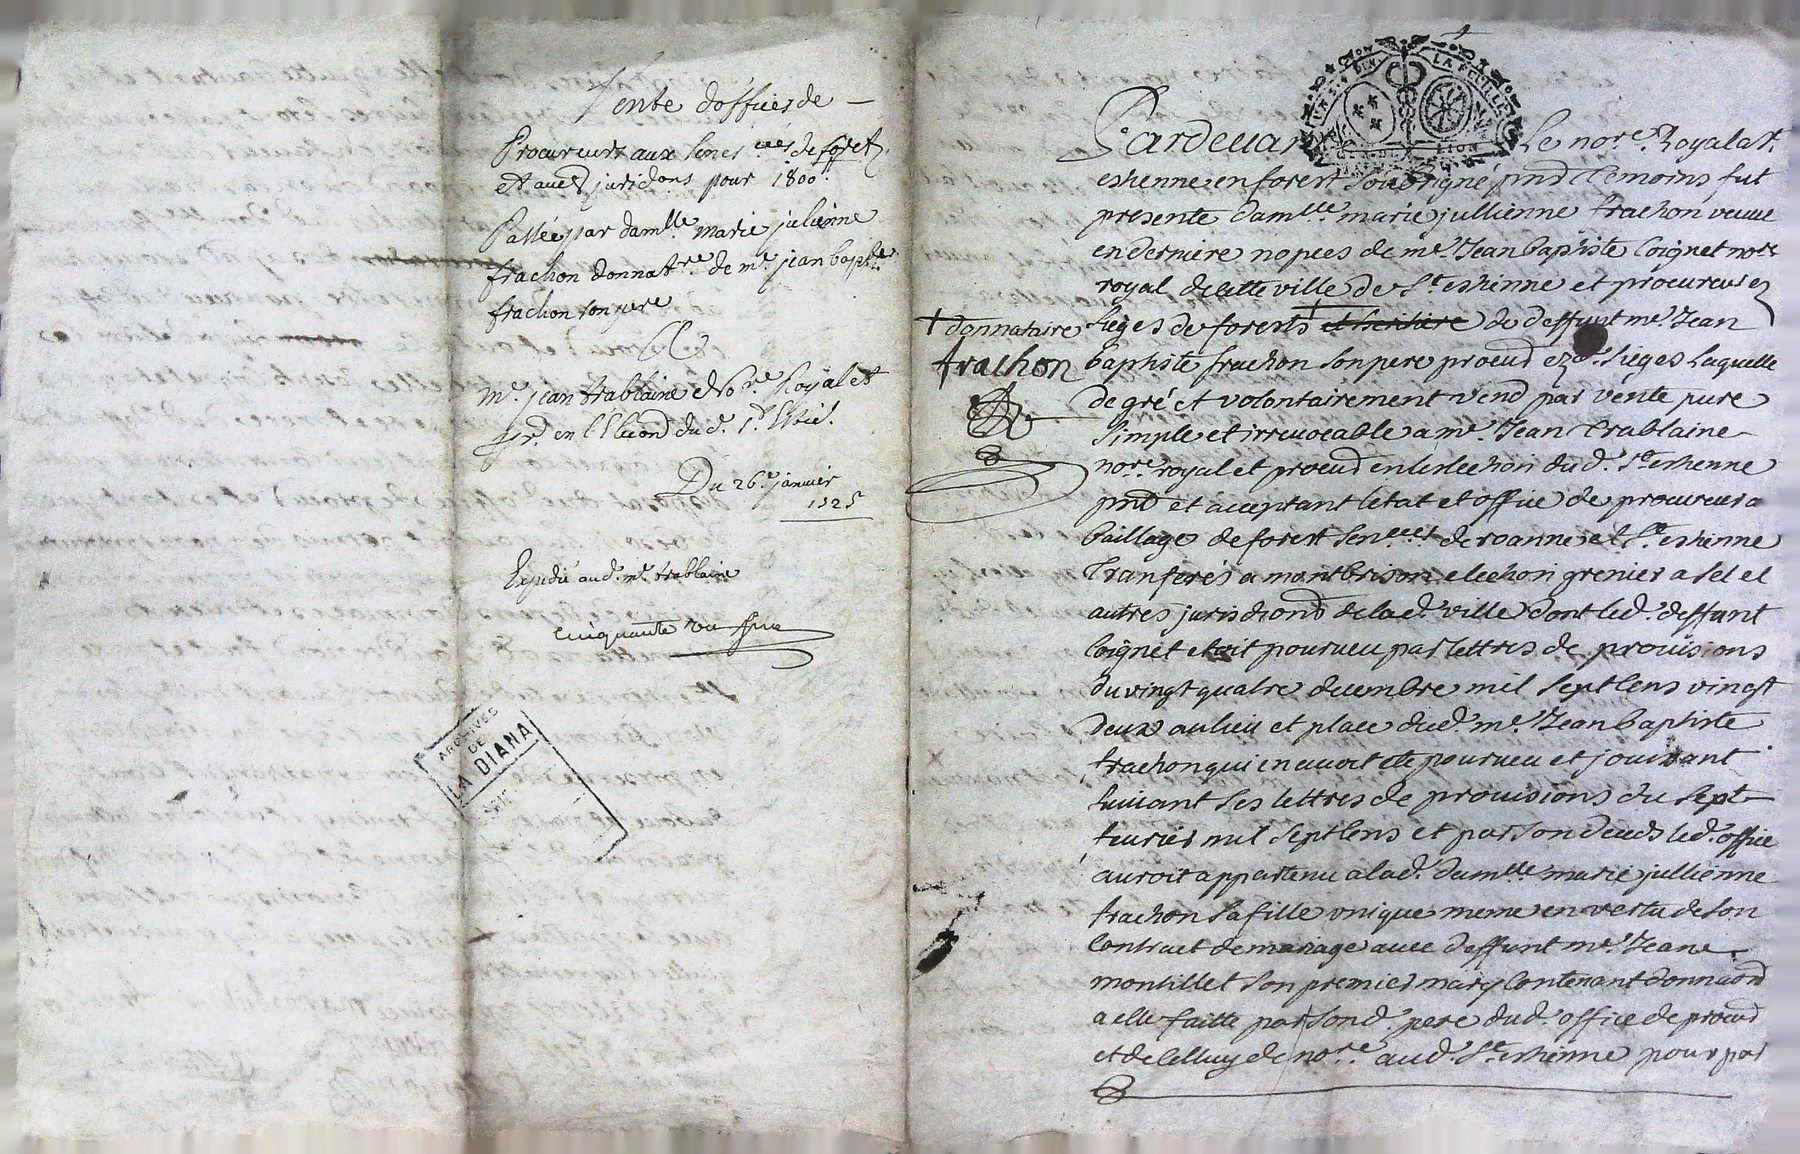 Vente d'offices de
Procureurs aux senes^ees de forets
et aues jurid^ons pour 1800^#
Passée par dam^lle marie julienne
frachon donnat^re de m^e jean bapt^te
frachon son pere
A
m^e jean trablaine No^re Royal et
pr^r en l'Election dud. S^t Etie.
Du 26^e janvier
1725
Expedié aud. m^e trablaine
cinquante un
ARCHIVES
DE
LA DIANA
Pardeuant Le no^re Royal a S^t
estienne en forest soubsigne pnd temoins fut
presente dam^lle marie jullienne frachon veuue
en derniere nopces de m^e Jean baptiste Coignet no^re
royal de cette ville de S^t estienne et procureur ez
sieges de forests et heritiere de deffunt m^e Jean
† donnataire
frachon
baptiste frachon son pere procud ezd. sieges Laquelle
de gré et volontairement vend par vente pure
simple et irreuocable a m^e Jean trablaine
no^re royal et procud en l'eslection dud. S^t estienne
pnd et acceptant l'etat et office de procureur a
baillage de forest sen^ees de roanne et S^t estienne
tranferés a montbrison election grenier a sel et
autres jurisdiond de lad. ville dont led. deffunt
Coignet etoit pourueu par lettres de prouisions
du vingt quatre decembre mil sept Cens vingt
deux au lieu et place dud. m^e Jean baptiste
frachon qui en auoit ete pourueu et jouissant
suiuant ses lettres de prouisions du sept
feurier mil sept Cens et par son deceds led. office
auroit appartenu a lad. dam^lle marie jullienne
frachon sa fille vnique meme en vertu de son
Contract de mariage auec deffunt m^e Jean
montillet son premier mary Contenant donnaond
a elle faitte par sond. pere dud. office de procud
et de Celluy de no^re aud. S^t estienne pour par